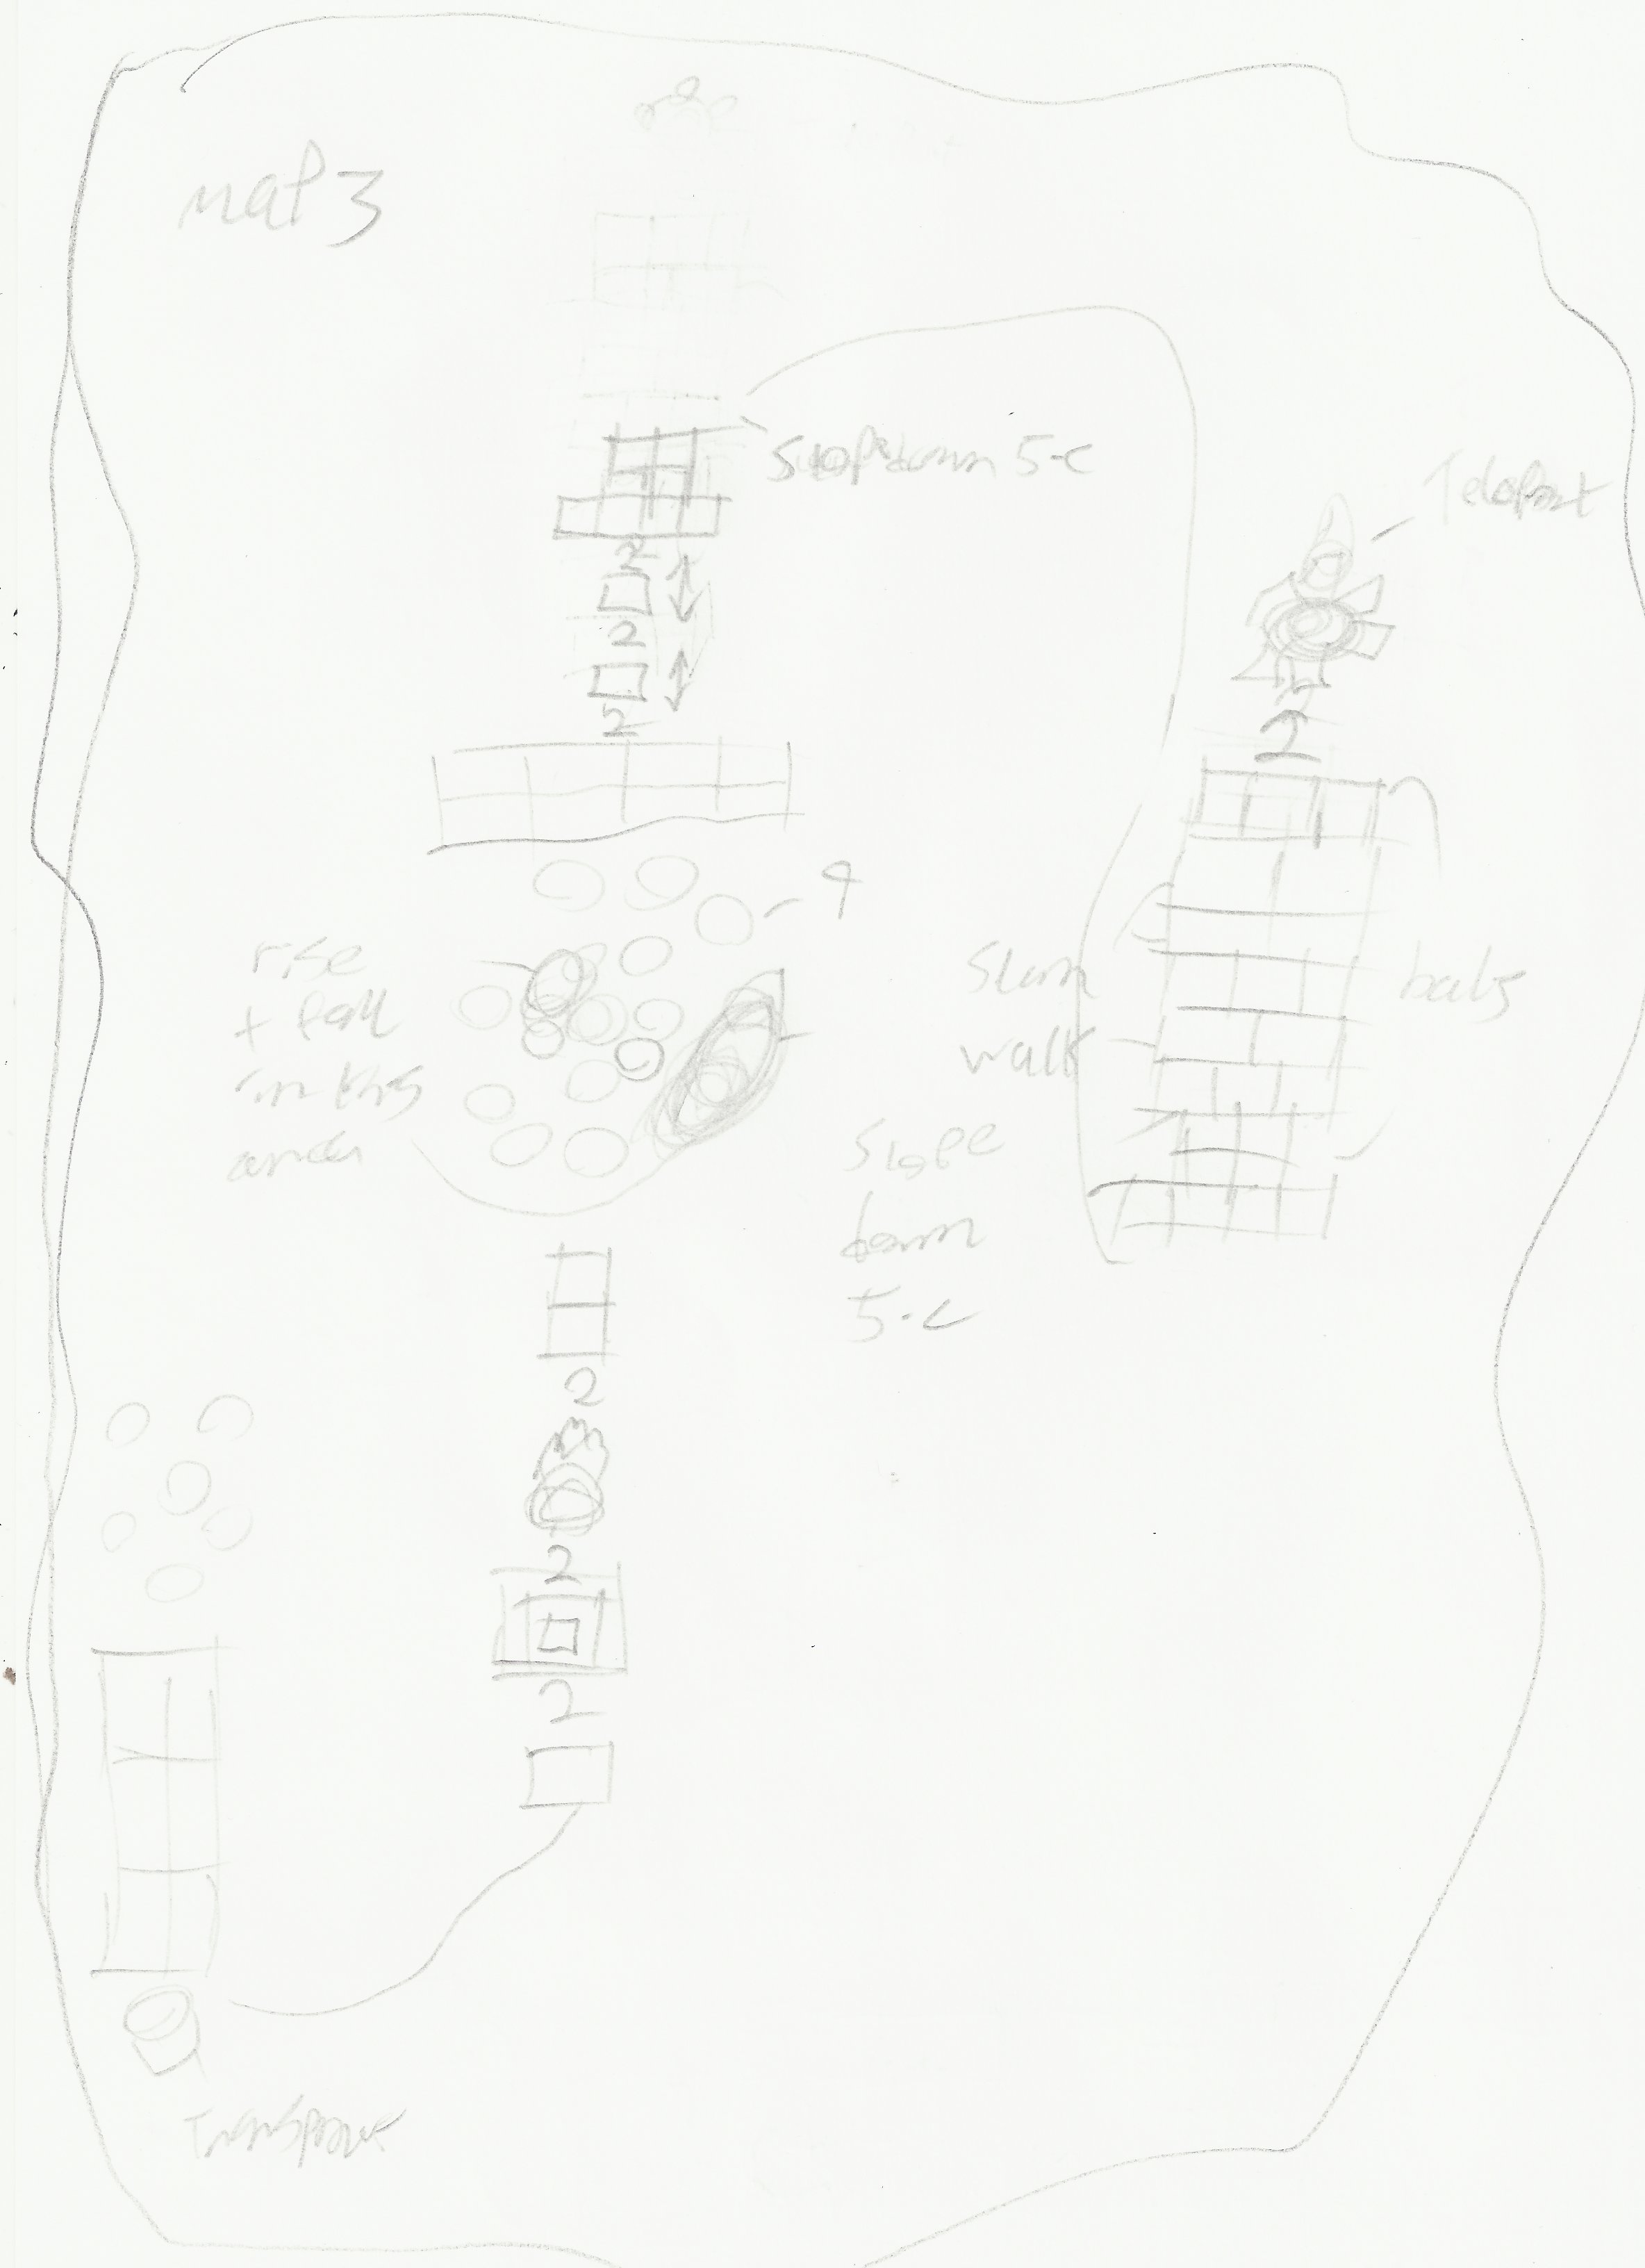 map 3
slope down 5-c
Teleport
2
2
2
2
4
rise
+ fall
in this
area
slow
walk
balls
slope
down
5-c
2
2
2
Transport